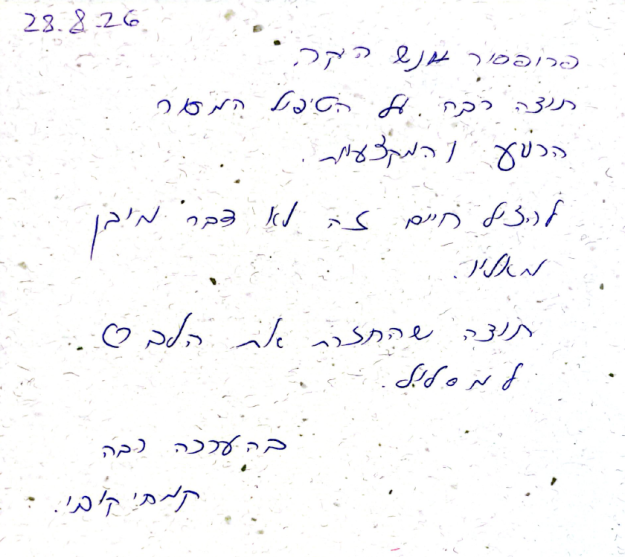 28.8.26
פרופסיר אנש היקר.
תודה רבה. על הטיפול המסור
הרגע והמקצעיות.
להציל חיים זה לא דבר מיבן
מאליו.
תודה שהחזרת את הלב ♡
למסלול.
בהערכה רבה
קמחי קובי.